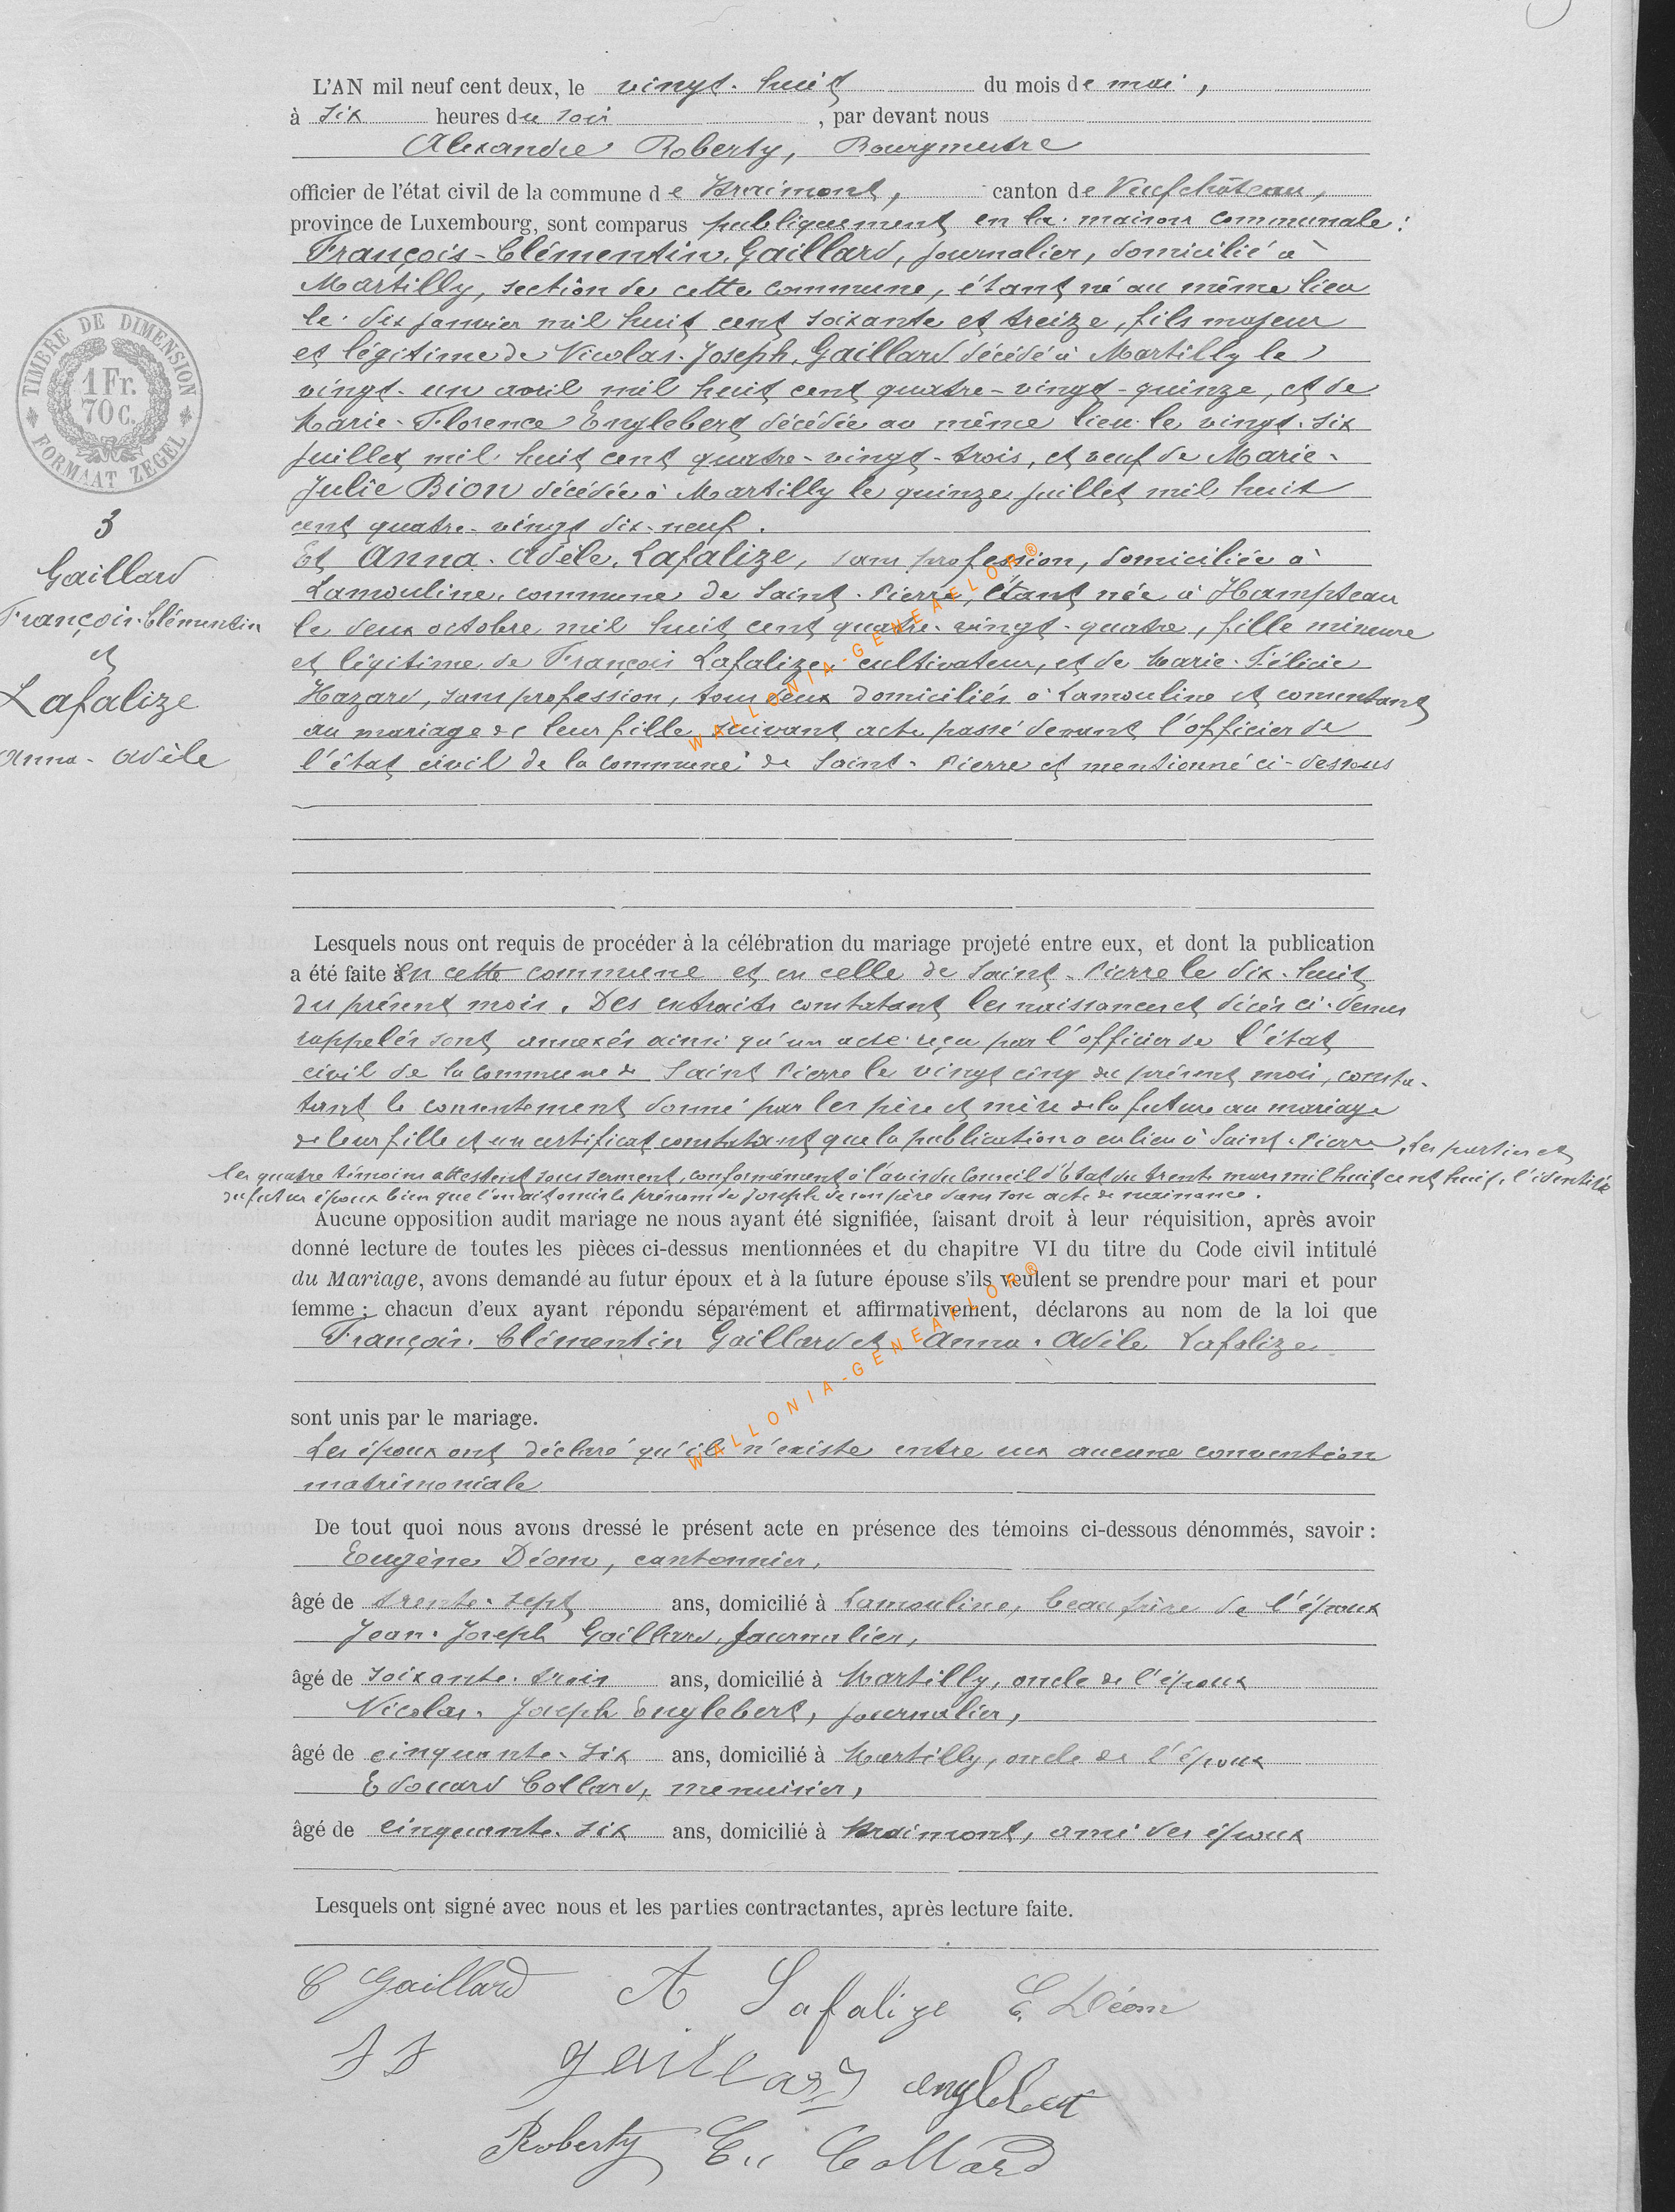 L'AN mil neuf cent deux, le vingt-huit du mois de mai,
à six heures du soir, par devant nous
Alexandre Roberty, Bourgmestre
officier de l'état civil de la commune de Straimont, canton de Neufchâteau,
province de Luxembourg, sont comparus publiquement en la maison communale :
François-Clémentin, Gaillard, journalier, domicilié à
Martilly, section de cette commune, étant né au même lieu
le dix janvier mil huit cent soixante et treize, fils majeur
et légitime de Nicolas-Joseph, Gaillard décédé à Martilly le
vingt-un avril mil huit cent quatre-vingt-quinze, et de
Marie-Florence Englebert décédée au même lieu le vingt-six
juillet mil huit cent quatre-vingt-trois, et veuf de Marie-
Julie Bion décédée à Martilly le quinze juillet mil huit
cent quatre-vingt dix-neuf.
Et Anna-Adèle, Lafalize, sans profession, domiciliée à
Lamouline, commune de Saint-Pierre, étant née à Hampteau
le deux octobre mil huit cent quatre-vingt-quatre, fille mineure
et légitime de François Lafalize, cultivateur, et de Marie-Félicie
Hazard, sans profession, tous deux domiciliés à Lamouline et consentant
au mariage de leur fille, suivant acte passé devant l'officier de
l'état civil de la commune de Saint-Pierre et mentionné ci-dessous
TIMBRE DE DIMENSION
1 Fr.
70 C.
FORMAAT ZEGEL
3
Gaillard
François-Clémentin
et
Lafalize
Anna-Adèle
Lesquels nous ont requis de procéder à la célébration du mariage projeté entre eux, et dont la publication
a été faite en cette commune et en celle de Saint-Pierre le dix-huit
du présent mois. Des extraits constatant les naissances et décès ci-dessus
rappelés sont annexés ainsi qu'un acte reçu par l'officier de l'état
civil de la commune de Saint Pierre le vingt cinq du présent mois, consta-
tant le consentement donné par les père et mère de la future au mariage
de leur fille et un certificat constatant que la publication a eu lieu à Saint-Pierre. Les parties et
les quatre témoins attestent sous serment, conformément à l'avis du Conseil d'Etat du trente mars mil huit cent huit, l'identité
du futur époux bien que l'on ait omis le prénom de Joseph de son père dans son acte de naissance.
Aucune opposition audit mariage ne nous ayant été signifiée, faisant droit à leur réquisition, après avoir
donné lecture de toutes les pièces ci-dessus mentionnées et du chapitre VI du titre du Code civil intitulé
du Mariage, avons demandé au futur époux et à la future épouse s'ils veulent se prendre pour mari et pour
femme ; chacun d'eux ayant répondu séparément et affirmativement, déclarons au nom de la loi que
François-Clémentin Gaillard et Anna-Adèle Lafalize
sont unis par le mariage.
Les époux ont déclaré qu'il n'existe entre eux aucune convention
matrimoniale
De tout quoi nous avons dressé le présent acte en présence des témoins ci-dessous dénommés, savoir :
Eugène Déom, cantonnier,
âgé de trente-sept ans, domicilié à Lamouline, beau frère de l'époux
Jean-Joseph Gaillard, journalier,
âgé de soixante-trois ans, domicilié à Martilly, oncle de l'époux
Nicolas-Joseph Englebert, journalier,
âgé de cinquante-six ans, domicilié à Martilly, oncle de l'époux
Edouard Collard, menuisier,
âgé de cinquante-six ans, domicilié à Straimont, ami des époux
Lesquels ont signé avec nous et les parties contractantes, après lecture faite.
C Gaillard A Lafalize E. Déom
J J gaillard englebert
Roberty E. Collard
WALLONIA-GENEAELOR®
WALLONIA-GENEAELOR®